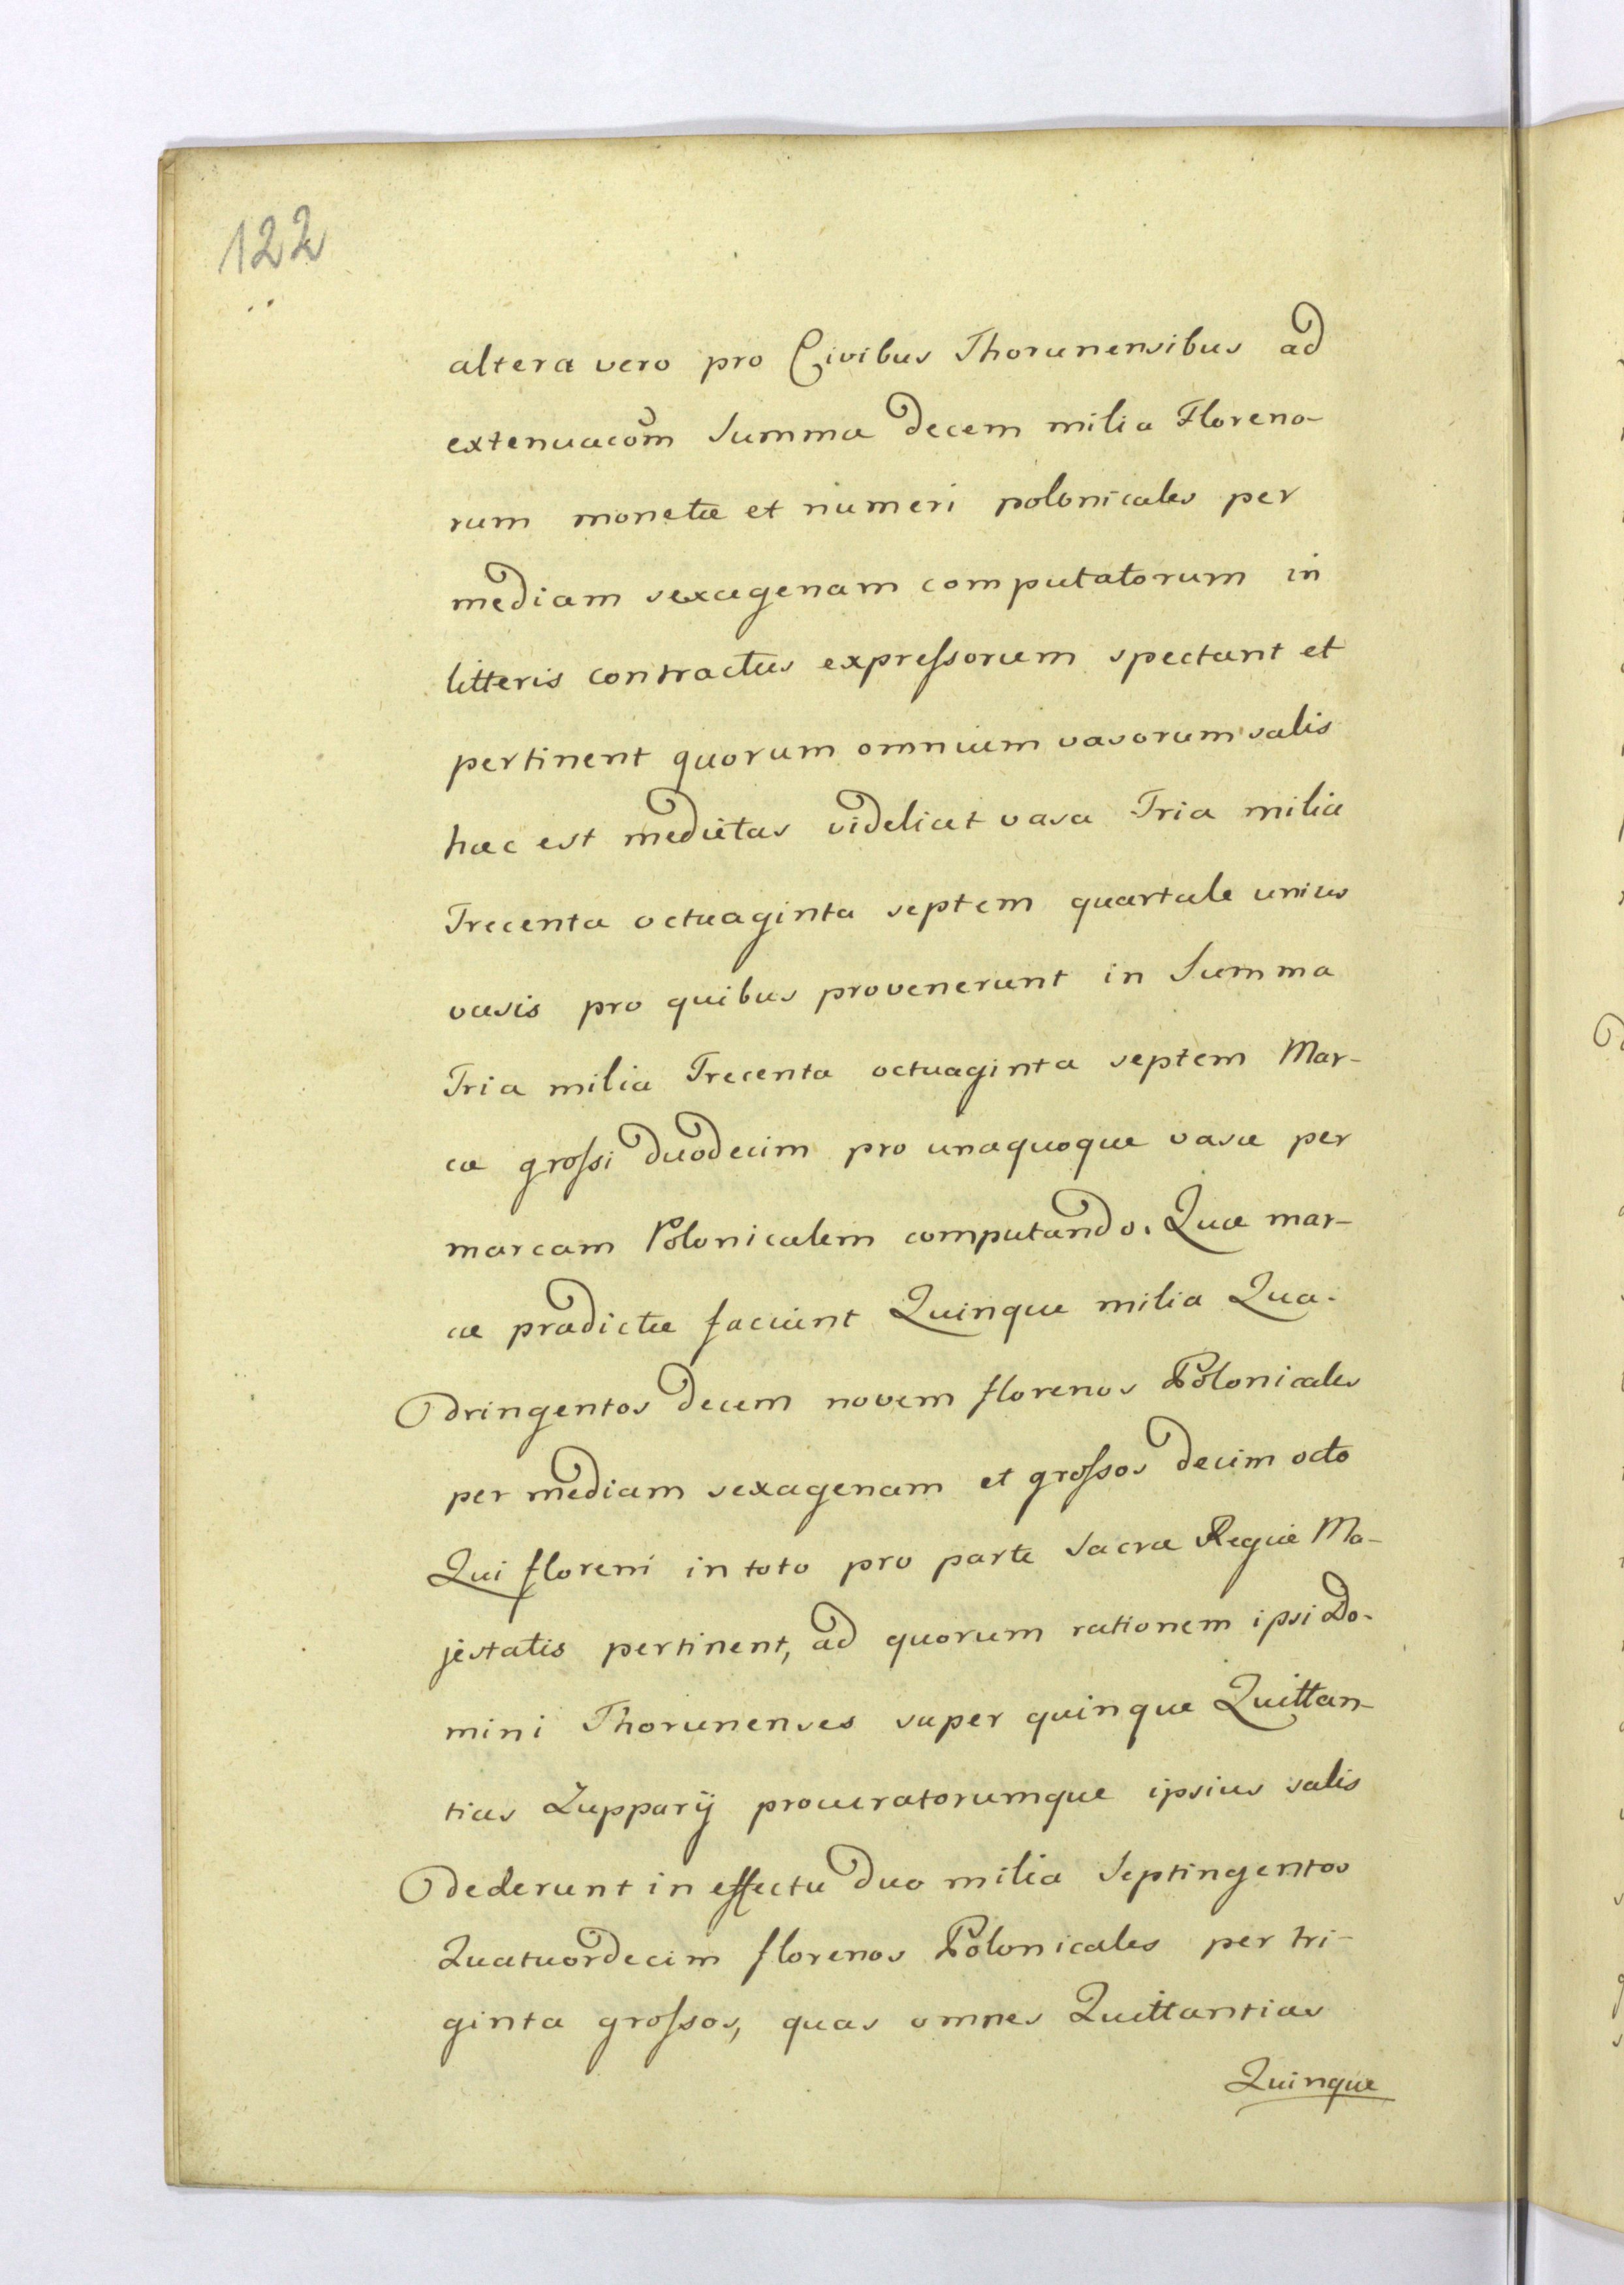 122
altera vero pro Civibus Thorunensibus ad
extenuacõm Summa decem milia Floreno-
rum monetæ et numeri polonicales per
mediam sexagenam computatorum in
litteris contractus expreſsorum spectant et
pertinent quorum omnium vasorum salis
haec est medietas videlicet vasa Tria milia
Trecenta octuaginta septem quartale unius
vasis pro quibus provenerunt in Summa
Tria milia Trecenta octuaginta septem Mar-
cæ groſsi duodecim pro unaquoque vase per
marcam Polonicalem computando. Quæ mar-
cæ prædictæ faciunt Quinque milia Qua-
dringentos decem novem florenos Polonicales
per mediam sexagenam et groſsos decim octo
Qui floreni in toto pro parte Sacræ Regiæ Ma-
jestatis pertinent, ad quorum rationem ipsi Do-
mini Thorunenses super quinque Quittan-
tias Zupparij procuratorumque ipsius salis
dederunt in effectu duo milia Septingentos
Quatuordecim florenos Polonicales per tri-
ginta groſsos, quas omnes Quittantias
Quinque